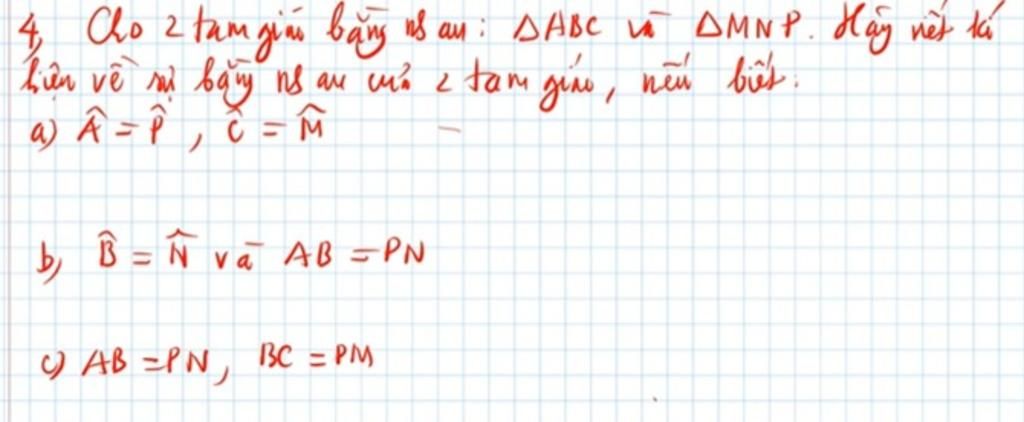 4, Cho 2 tam giác bằng nhau: ΔABC và ΔMNP. Hãy viết kí
hiệu về sự bằng nhau của 2 tam giác, nếu biết:
a) Â = P̂, Ĉ = M̂
b, B̂ = N̂ và AB = PN
c) AB = PN, BC = PM